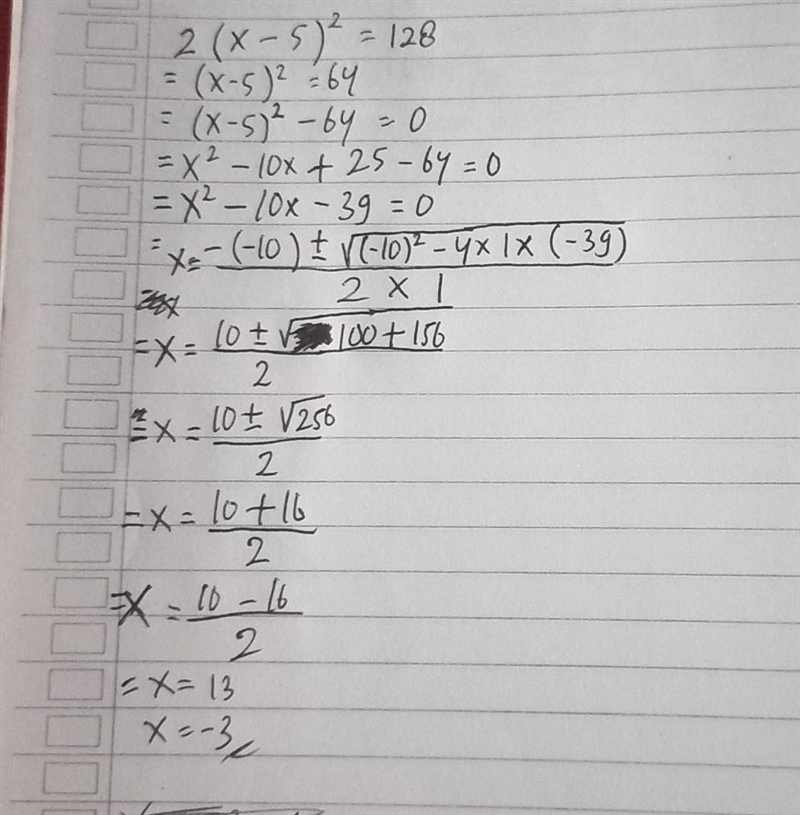 2 (x - 5)² = 128
= (x-5)² = 64
= (x-5)² - 64 = 0
= x² - 10x + 25 - 64 = 0
= x² - 10x - 39 = 0
= x = -(-10) ± √(-10)² - 4 x 1 x (-39)
2 x 1
= x = 10 ± √100 + 156
2
= x = 10 ± √256
2
= x = 10 + 16
2
= x = 10 - 16
2
= x = 13
x = -3